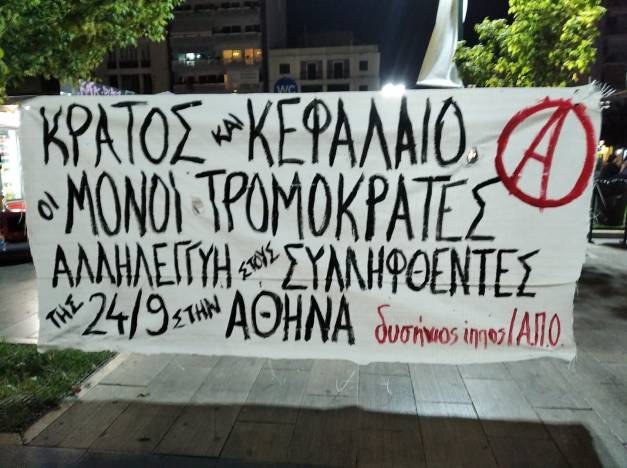 WC
ΚΡΑΤΟΣ ΚΑΙ ΚΕΦΑΛΑΙΟ
ΟΙ ΜΟΝΟΙ ΤΡΟΜΟΚΡΑΤΕΣ
ΑΛΛΗΛΕΓΓΥΗ ΣΤΟΥΣ ΣΥΛΛΗΦΘΕΝΤΕΣ
ΤΗΣ 24/9 ΣΤΗΝ ΑΘΗΝΑ δυσήνιος ίππος/Α.Π.Ο.
A